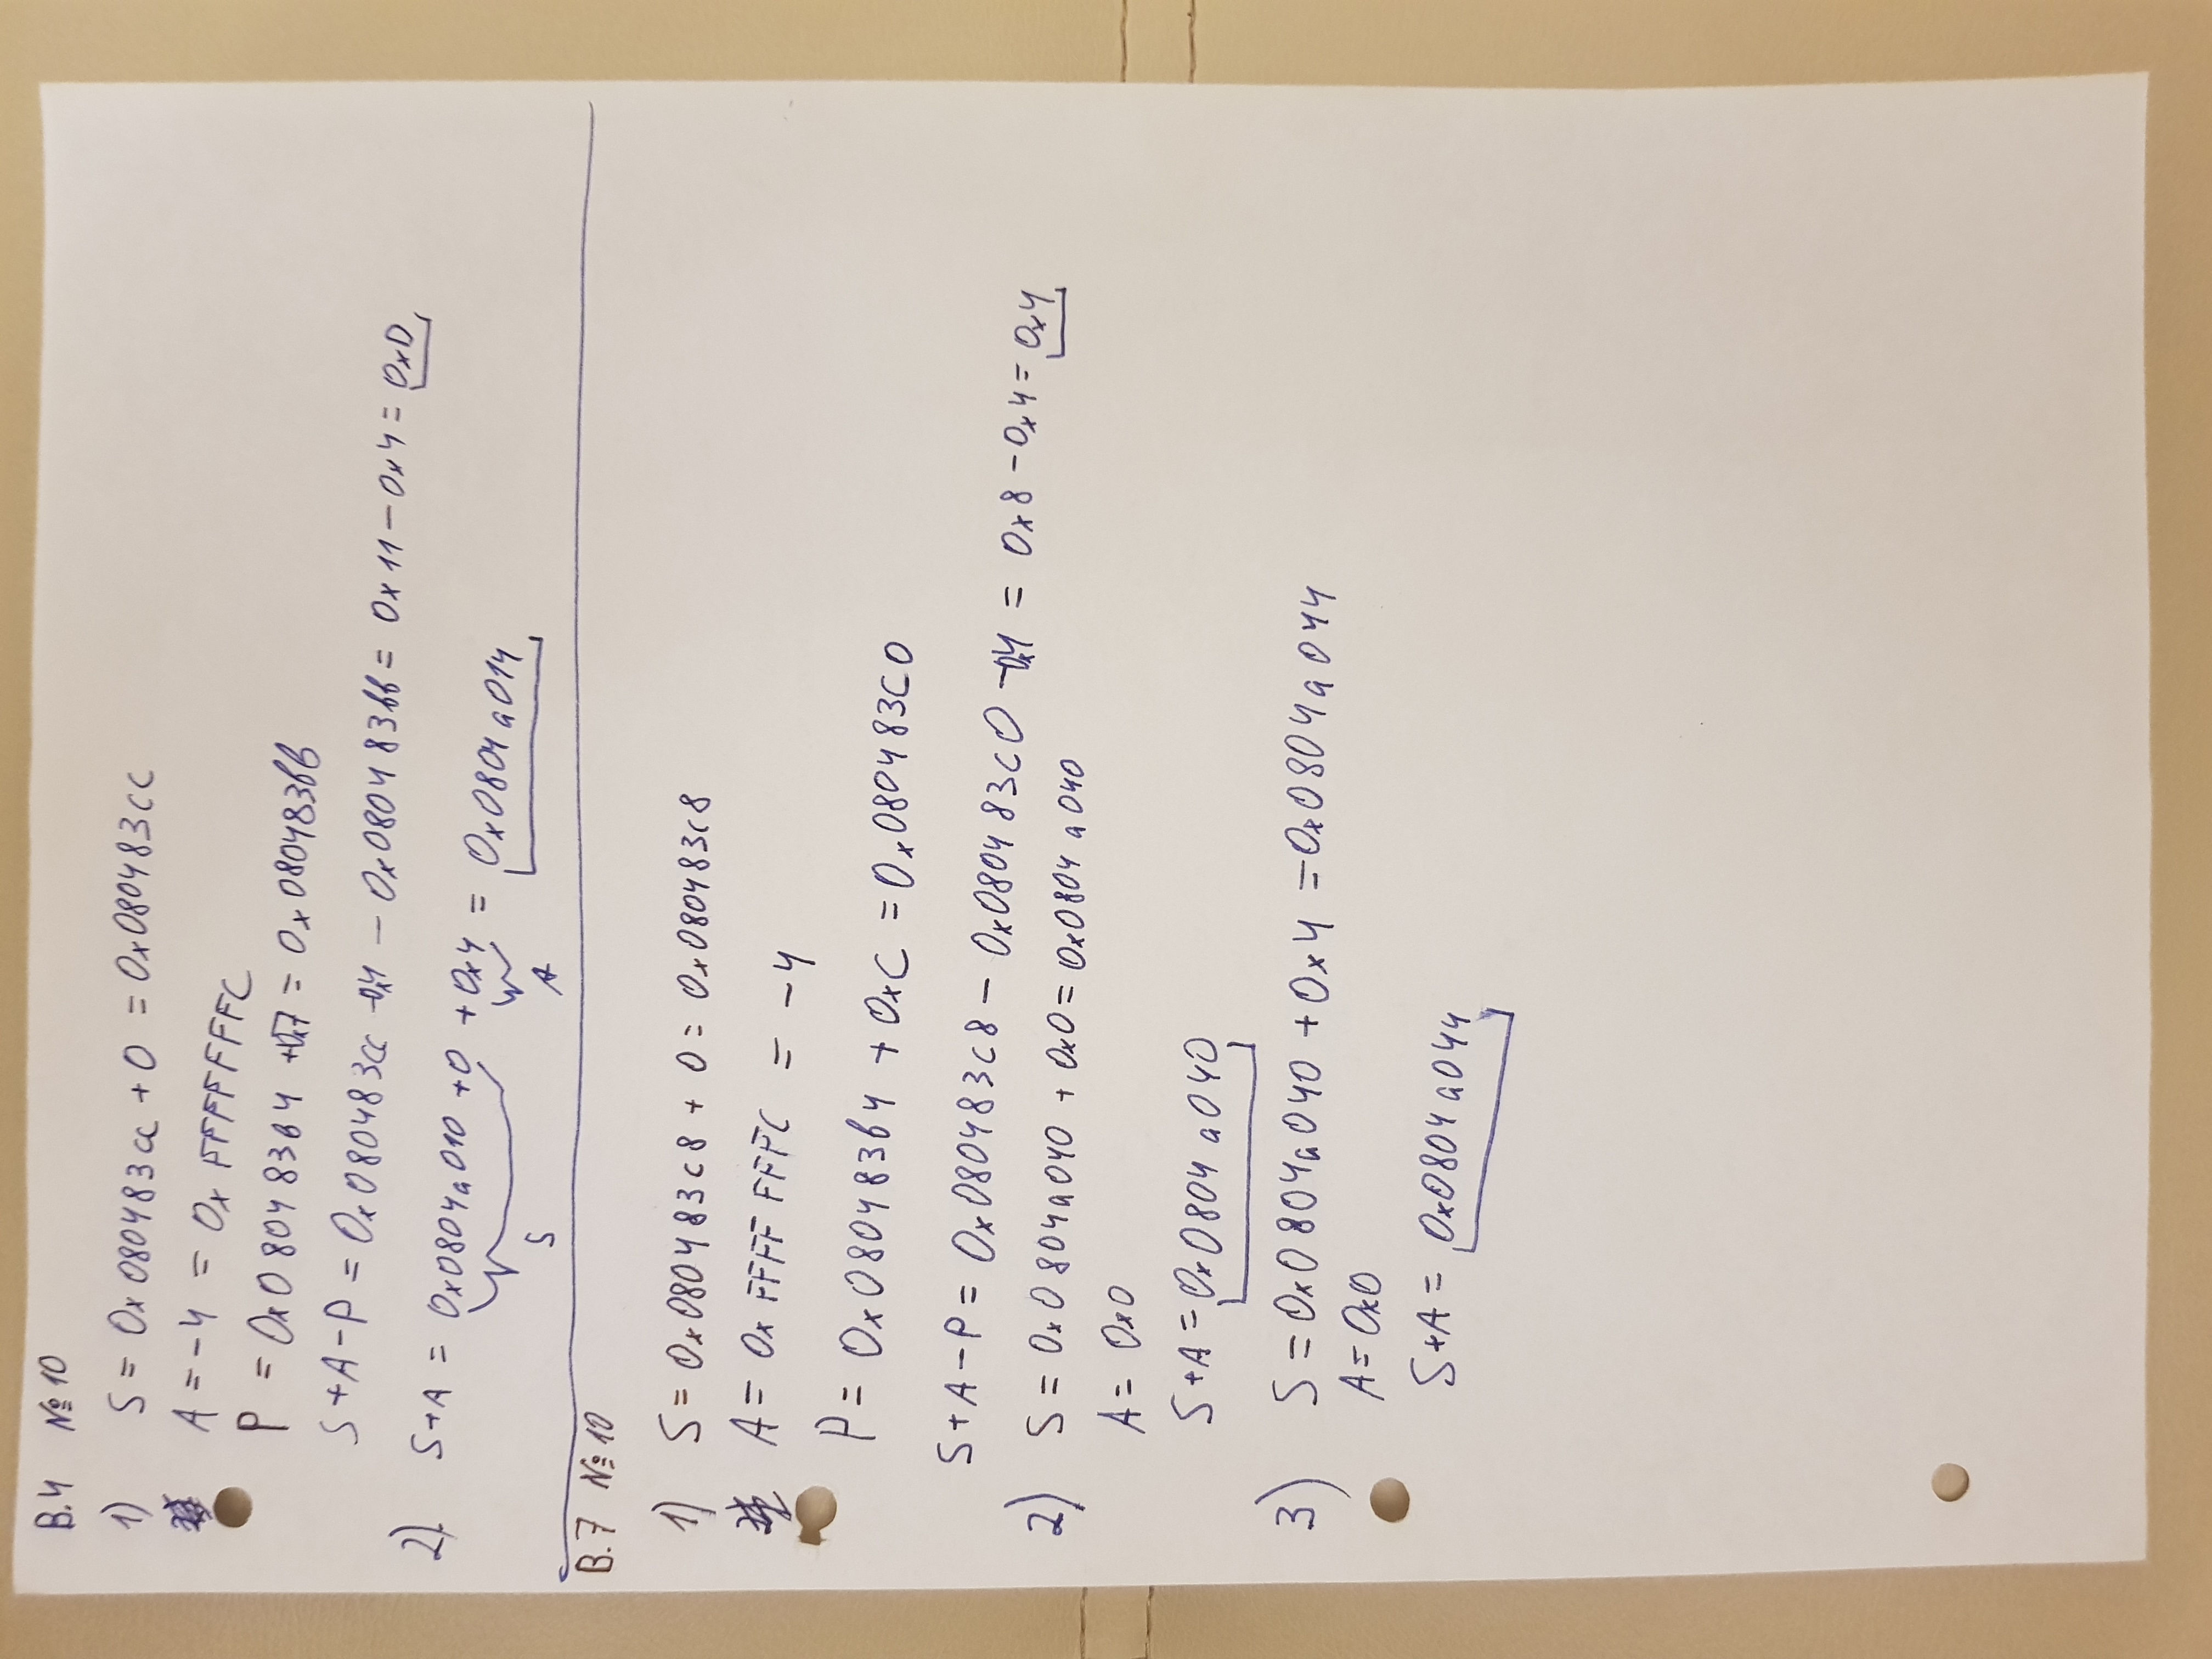 В.4 №10
1) S = 0x080483cc + 0 = 0x080483cc
A = -4 = 0x FFFFFFFC
P = 0x080483b4 +0x7 = 0x080483bb
S+A-P = 0x080483cc -0x4 - 0x080483bb = 0x11 - 0x4 = 0xD
2) S+A = 0x0804a010 +0 + 0x4 = 0x0804a014
S A
В.7 №10
1) S = 0x080483c8 + 0 = 0x080483c8
A = 0x FFFF FFFC = -4
P = 0x080483b4 + 0xC = 0x080483C0
S+A-P = 0x080483c8 - 0x080483c0 -0x4 = 0x8 - 0x4 = 0x4
2) S = 0x0804a040 + 0x0 = 0x0804a040
A = 0x0
S+A = 0x0804a040
3) S = 0x0804a040 + 0x4 = 0x0804a044
A = 0x0
S+A = 0x0804a044